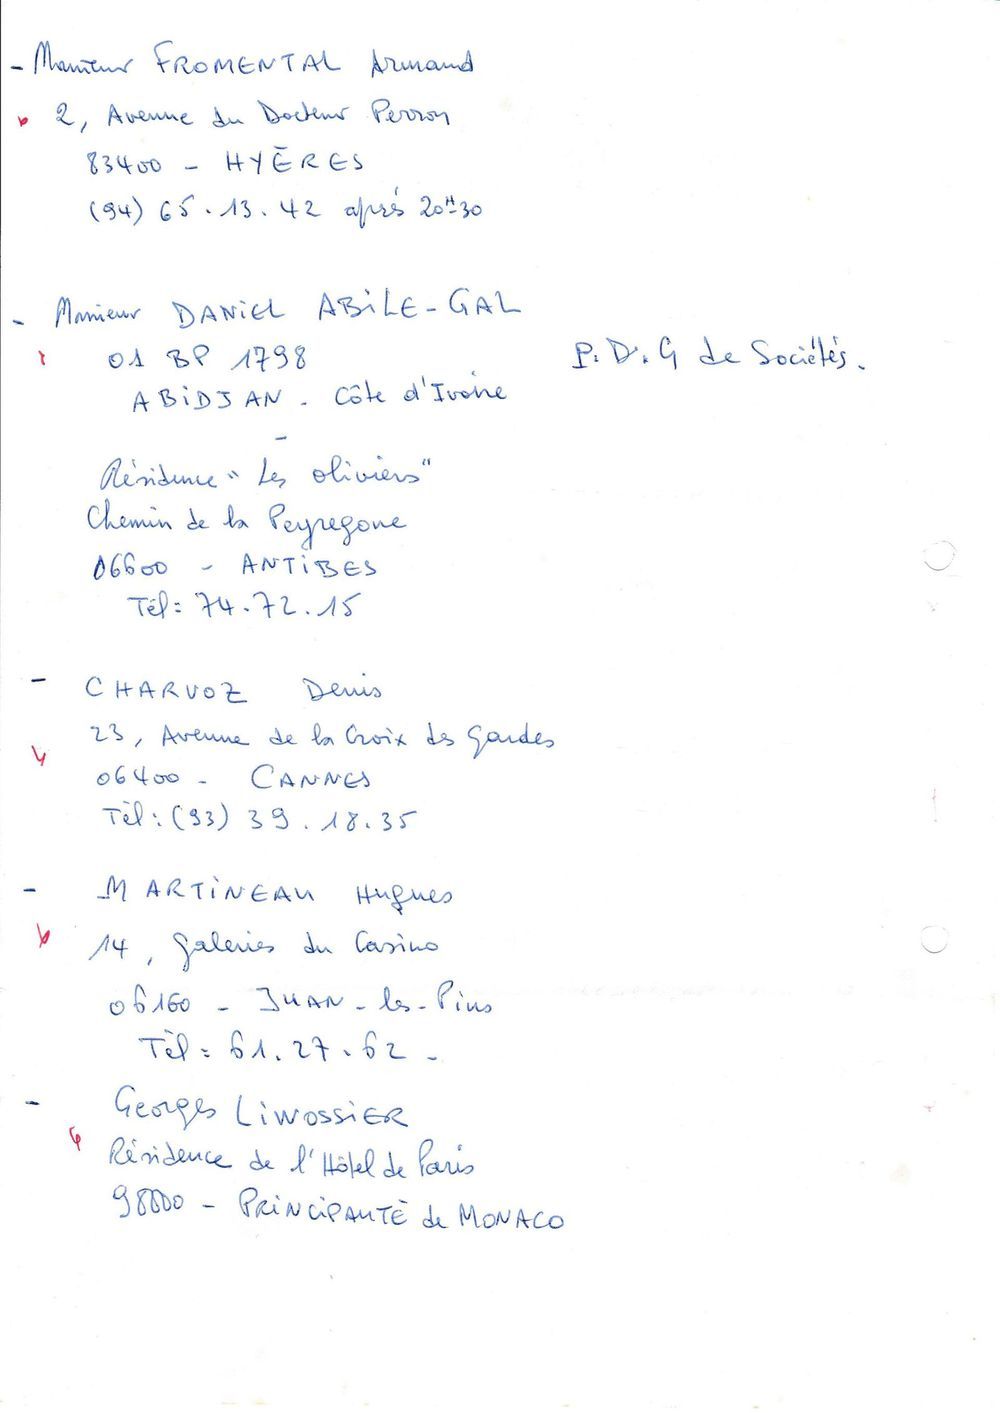 - Monsieur FROMENTAL Armand
2, Avenue du Docteur Perron
83400 - HYÈRES
(94) 65.13.42 après 20H30
- Monsieur DANIEL ABILE-GAL
01 BP 1798
P.D.G de Sociétés.
ABIDJAN - Côte d'Ivoire
-
Résidence "Les oliviers"
Chemin de la Peyregoue
06600 - ANTIBES
Tél: 74.72.15
- CHARVOZ Denis
23, Avenue de la Croix des Gardes
06400 - CANNES
Tél: (93) 39.18.35
- MARTINEAU Hugues
14, Galeries du Casino
06160 - JUAN-les-Pins
Tél: 61.27.62 -
- Georges LIWOSSIER
Résidence de l'Hôtel de Paris
98000 - PRINCIPAUTÉ de MONACO